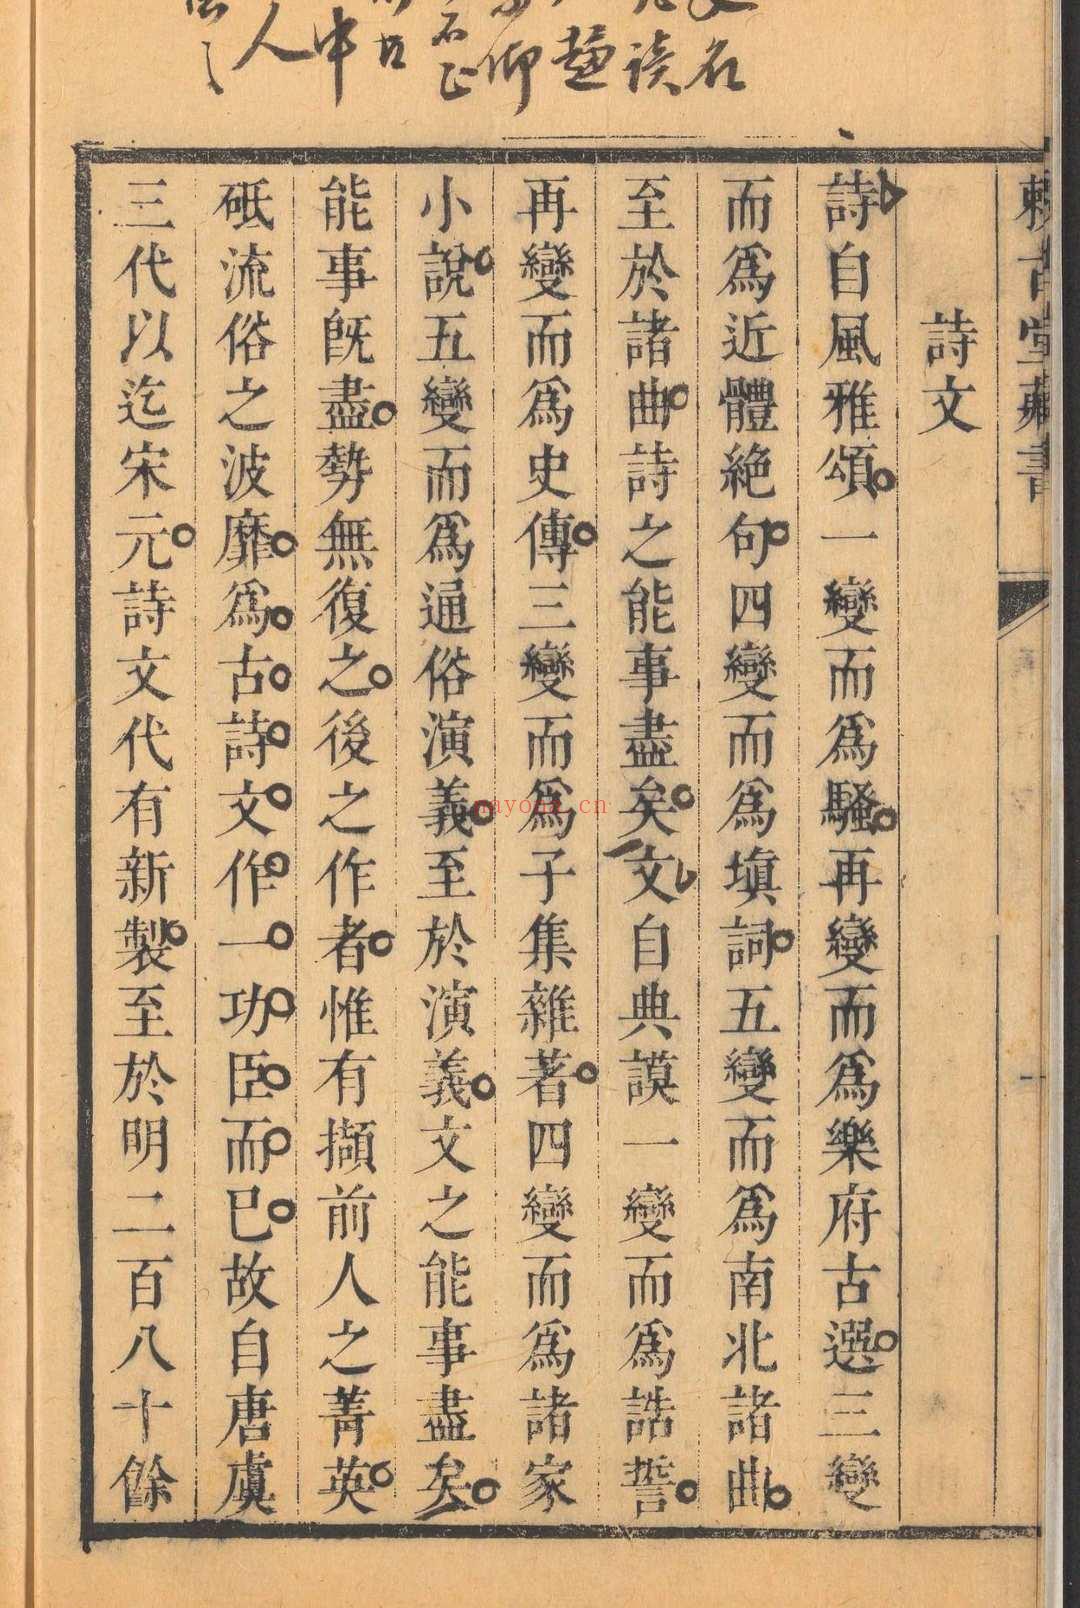 賴古堂藏書
詩文
詩自風雅頌一變而爲騷再變而爲樂府古選三變
而爲近體絶句四變而爲塡詞五變而爲南北諸曲
至於諸曲詩之能事盡矣文自典謨一變而爲誥誓
再變而爲史傳三變而爲子集雜著四變而爲諸家
小說五變而爲通俗演義至於演義文之能事盡矣
能事旣盡勢無復之後之作者惟有擷前人之菁英
砥流俗之波靡爲古詩文作一功臣而已故自唐虞
三代以迄宋元詩文代有新製至於明二百八十餘
名
讀
中
人
nayona.cn